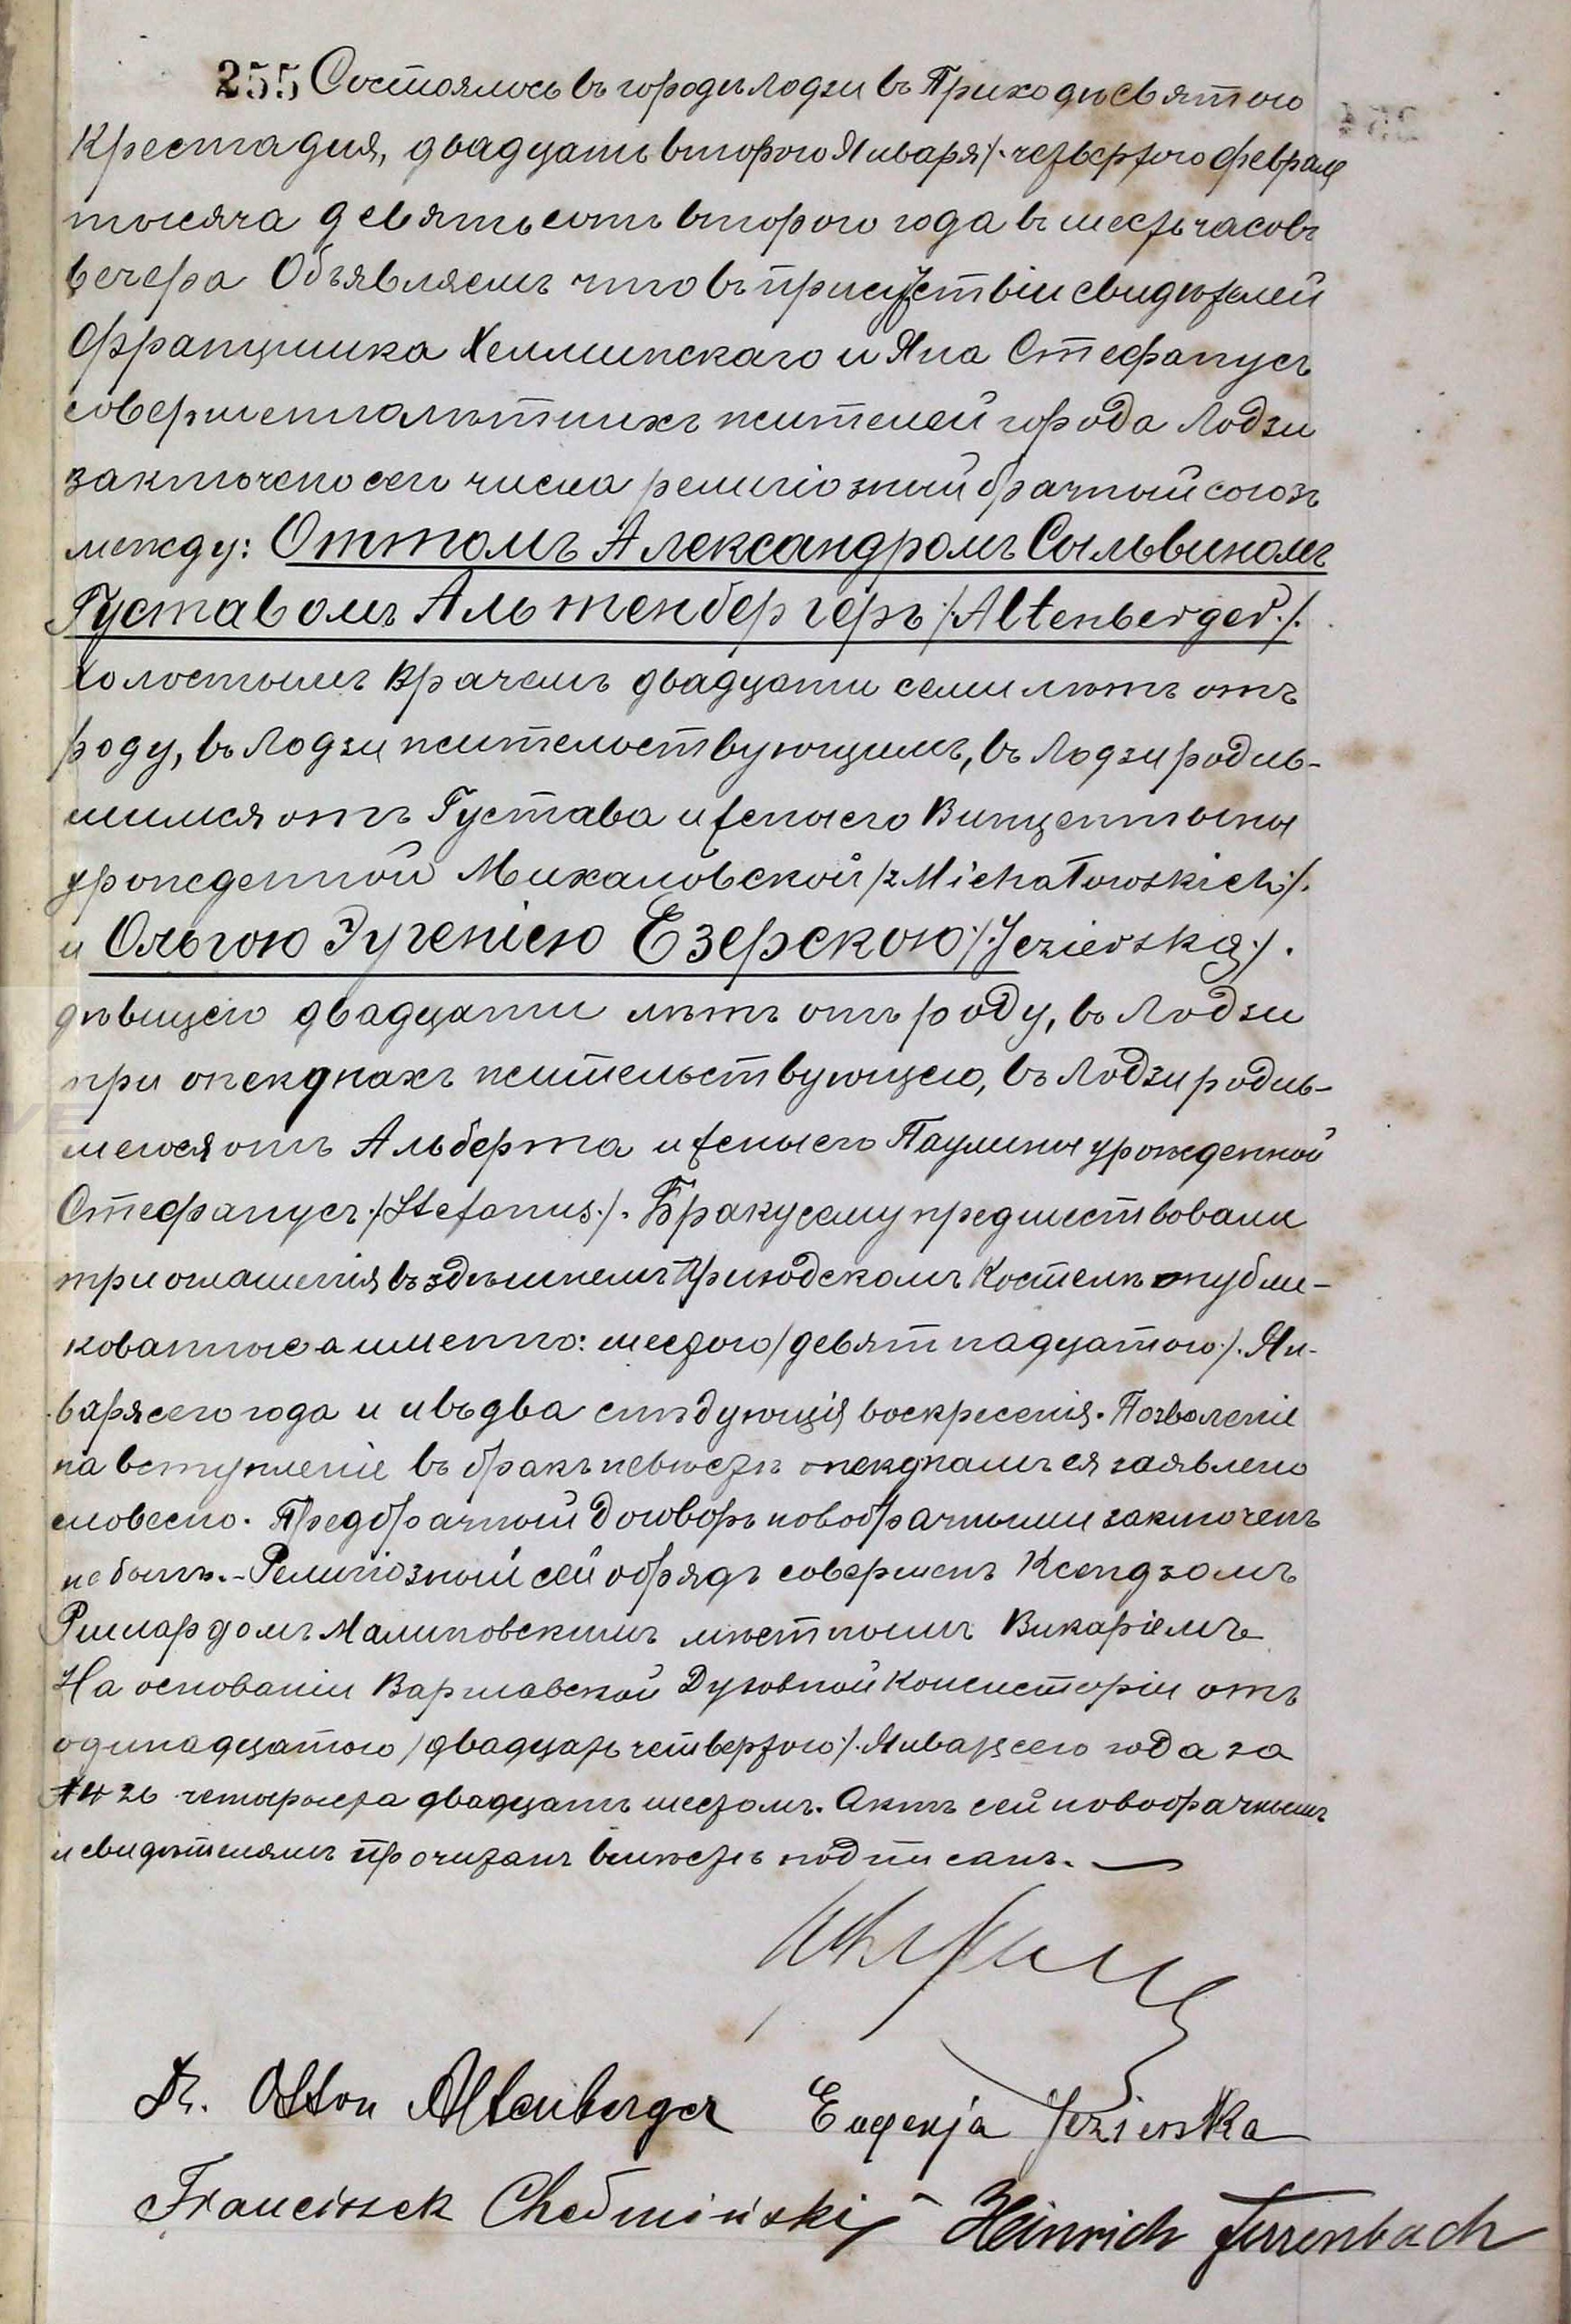 255 Состоялось въ городѣ Лодзи въ Приходѣ Святого
Креста дня, двадцать второго Января /. четвертого Февраля
тысяча девятьсотъ второго года въ шесть часовъ
вечера Объявляемъ что въ присутствіи свидѣтелей
Францишка Хелминскаго и Яна Стефанусъ
совершеннолѣтнихъ жителей города Лодзи
заключено сего числа религіозный брачный союзъ
между: Оттомъ Александромъ Сыльвиномъ
Густавомъ Альтенбергеръ /. Altenberger ./.
холостымъ Врачемъ двадцати семи лѣтъ отъ
роду, въ Лодзи жительствующимъ, въ Лодзи родив-
шимся отъ Густава и жены его Винцентыны
урожденной Михаловской /z Michałowskich/.
и Ольгою Эугеніею Езерскою /. Jezierską /.
дѣвицею двадцати лѣтъ отъ роду, въ Лодзи
при опекунахъ жительствующею, въ Лодзи родив-
шеюся отъ Альберта и жены его Паулины урожденной
Стефанусъ /. Stefanus ./. Браку сему предшествовали
три оглашенія въ здѣшнемъ Приходскомъ Костелѣ опубли-
кованные а именно: шестого /девятнадцатого/. Ян-
варя сего года и въ два слѣдующія воскресенія. Позволеніе
на вступленіе въ бракъ невѣстѣ опекунамъ ея заявлено
словесно. Предбрачный договоръ новобрачными заключенъ
не былъ. - Религіозный сей обрядъ совершенъ Ксендзомъ
Ришардомъ Малиновскимъ мѣстнымъ Викаріемъ
На основаніи Варшавской Духовной Консисторіи отъ
одинадцатого /двадцать четвертого/. Января сего года за
№ 426 четыреста двадцать шестомъ. Актъ сей новобрачнымъ
и свидѣтелямъ прочитанъ вмѣстѣ подписанъ. —
Dr. Otton Altenberger Eugenja Jezierska
Franciszek Chełmiński Heinrich Ferrenbach